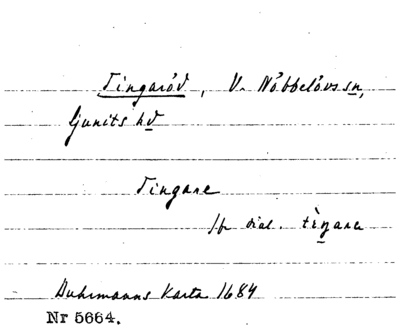 Tingaröd, V. Nöbbelövs sn,
Ljunits hd
Tingare
jfr dial. tìŋara
Buhrmanns Karta 1684
Nr 5664.